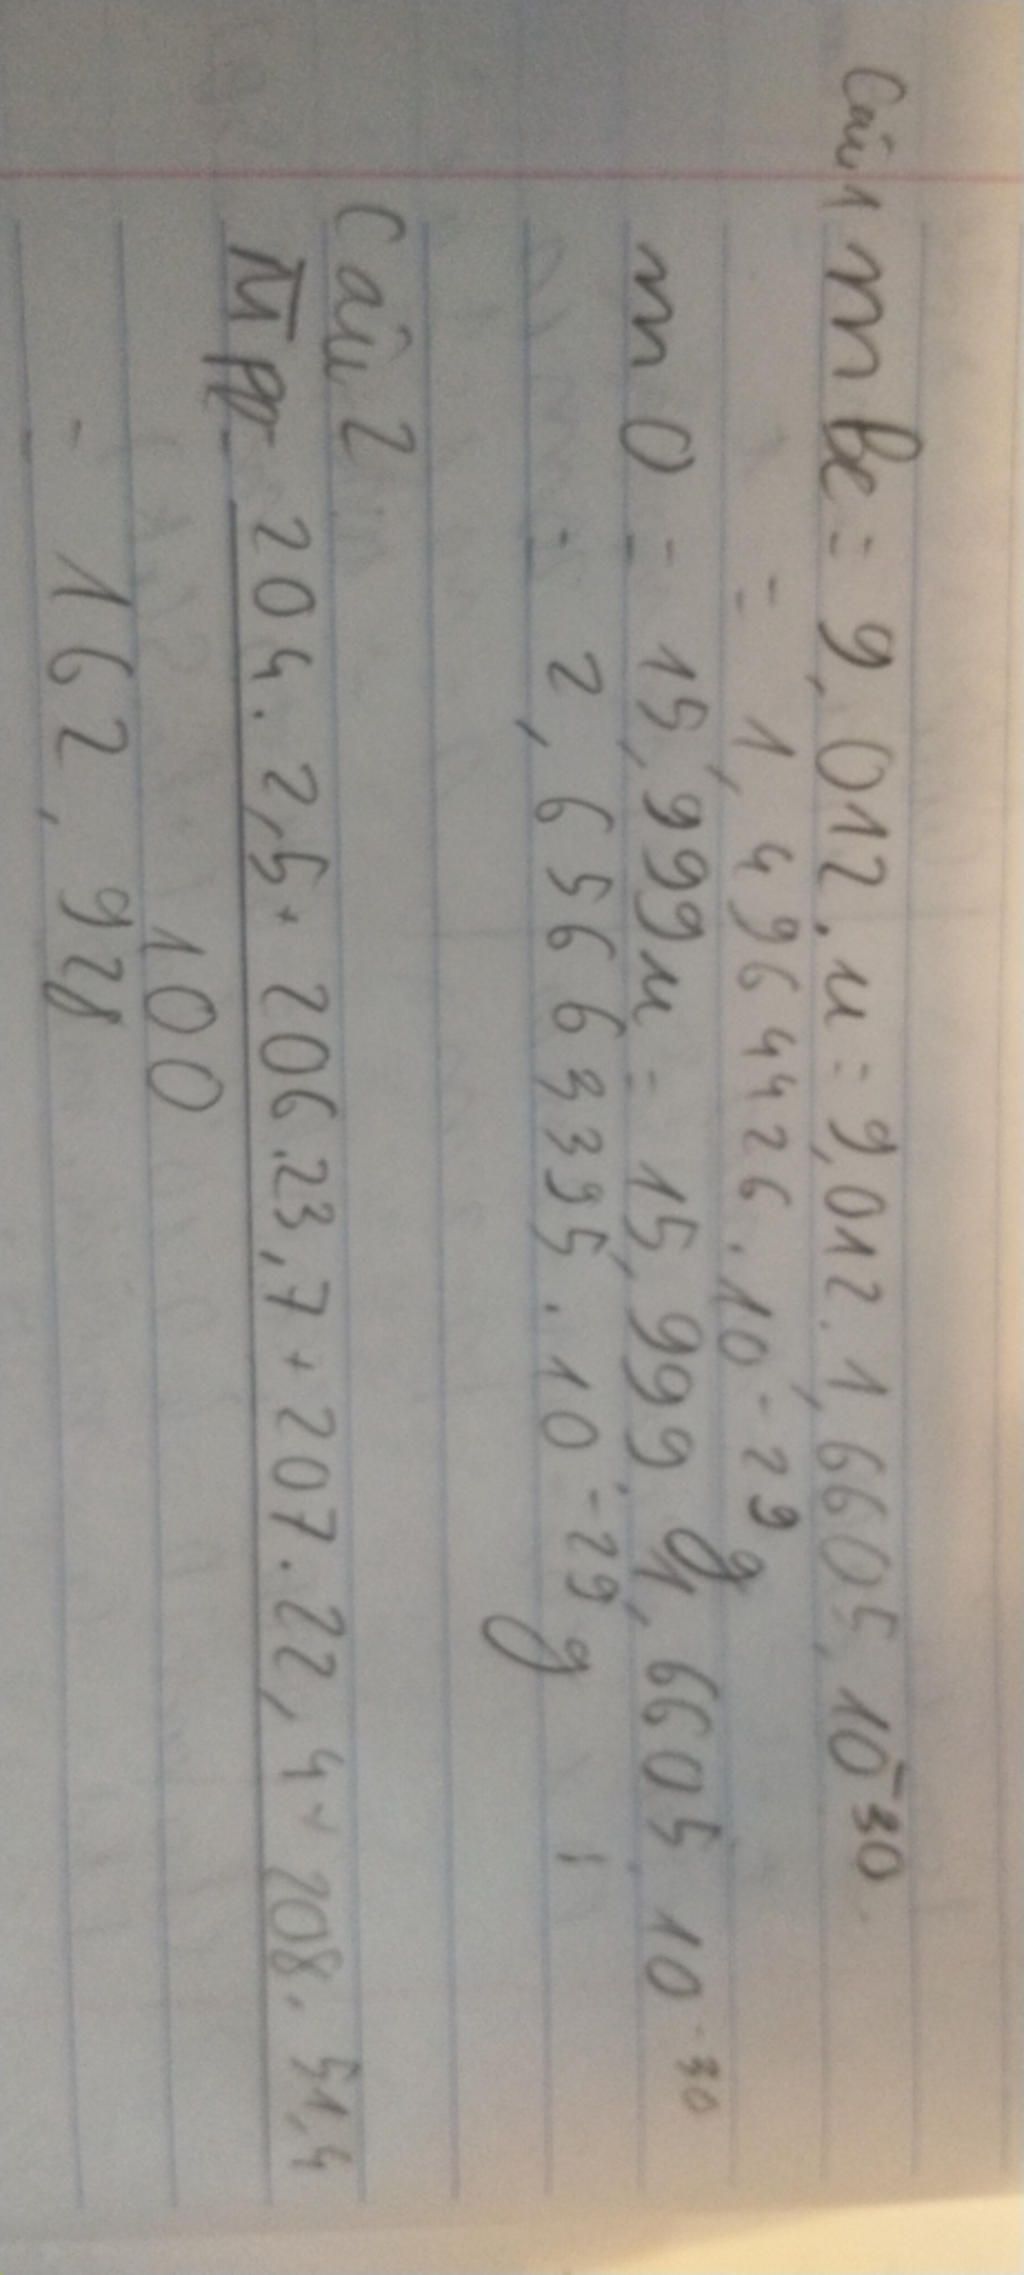 Câu 1 m Be = 9,012. u = 9,012. 1,6605, 10⁻³⁰
= 1,4964426.10⁻²⁹ g
m O = 15,999u = 15,999. 1,6605 10⁻³⁰
= 2,65663395.10⁻²⁹ g
Câu 2
M̅ pp = 204. 2,5+ 206.23,7 + 207.22,4 + 208. 51,4
100
= 162,928